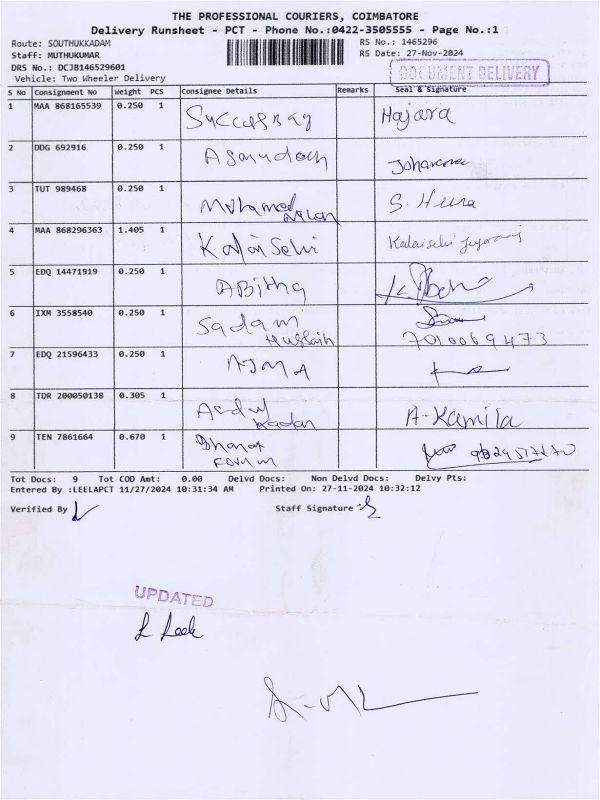 THE PROFESSIONAL COURIERS, COIMBATORE
Delivery Runsheet - PCT - Phone No.:0422-3505555 - Page No.:1
Route: SOUTHUKKADAM RS No.: 1465296
Staff: MUTHUKUMAR RS Date: 27-Nov-2024
DRS No.: DCJB146529601
DOCUMENT DELIVERY
Vehicle: Two Wheeler Delivery
S No Consignment No Weight PCS Consignee Details Remarks Seal & Signature
1 MAA 868165539 0.250 1 Hajara
2 DDG 692916 0.250 1
3 TUT 989468 0.250 1 Mohamed S. Hura
4 MAA 868296363 1.405 1 KalaiSelvi Kalaiselvi
5 EDQ 14471919 0.250 1 ABitha
6 IXM 3558540 0.250 1 Sadam
Hussain 7010069473
7 EDQ 21596433 0.250 1 AJMA
8 TDR 200050138 0.305 1 A-Kamila
Kadar
9 TEN 7861664 0.670 1 Bharat
Tot Docs: 9 Tot COD Amt: 0.00 Delvd Docs: Non Delvd Docs: Delvy Pts:
Entered By :LEELAPCT 11/27/2024 10:31:34 AM Printed On: 27-11-2024 10:32:12
Verified By Staff Signature :
UPDATED